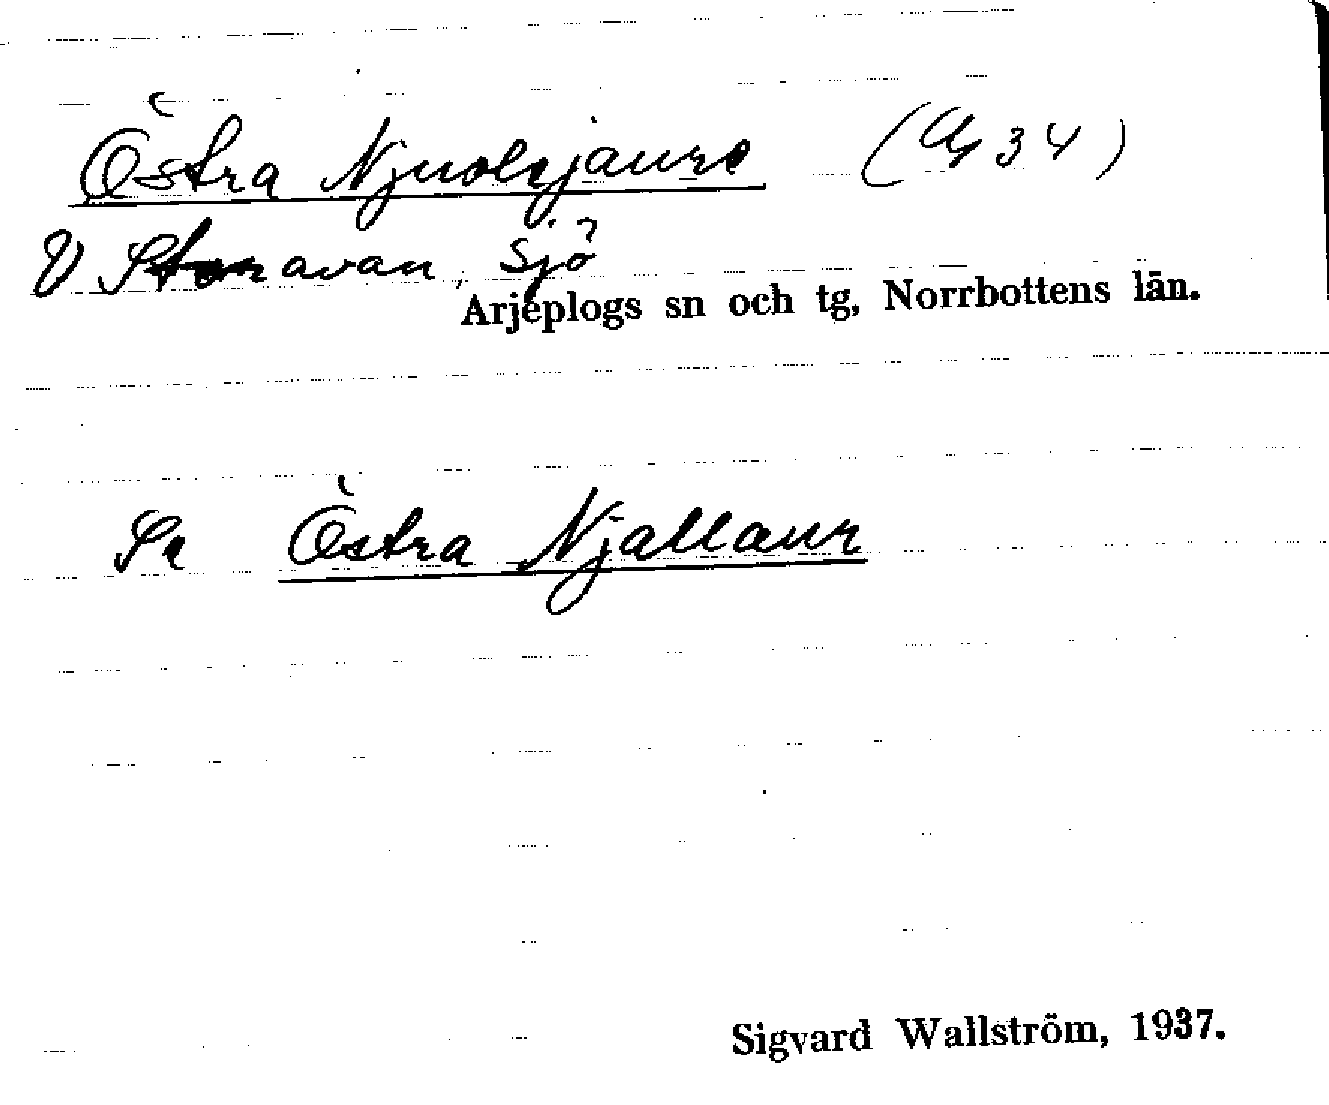 Östra Njuolejaure (Ap 34)
V Storavan, sjö
Arjeplogs sn och tg, Norrbottens län.
Se Östra Njallaur
Sigvard Wallström, 1937.